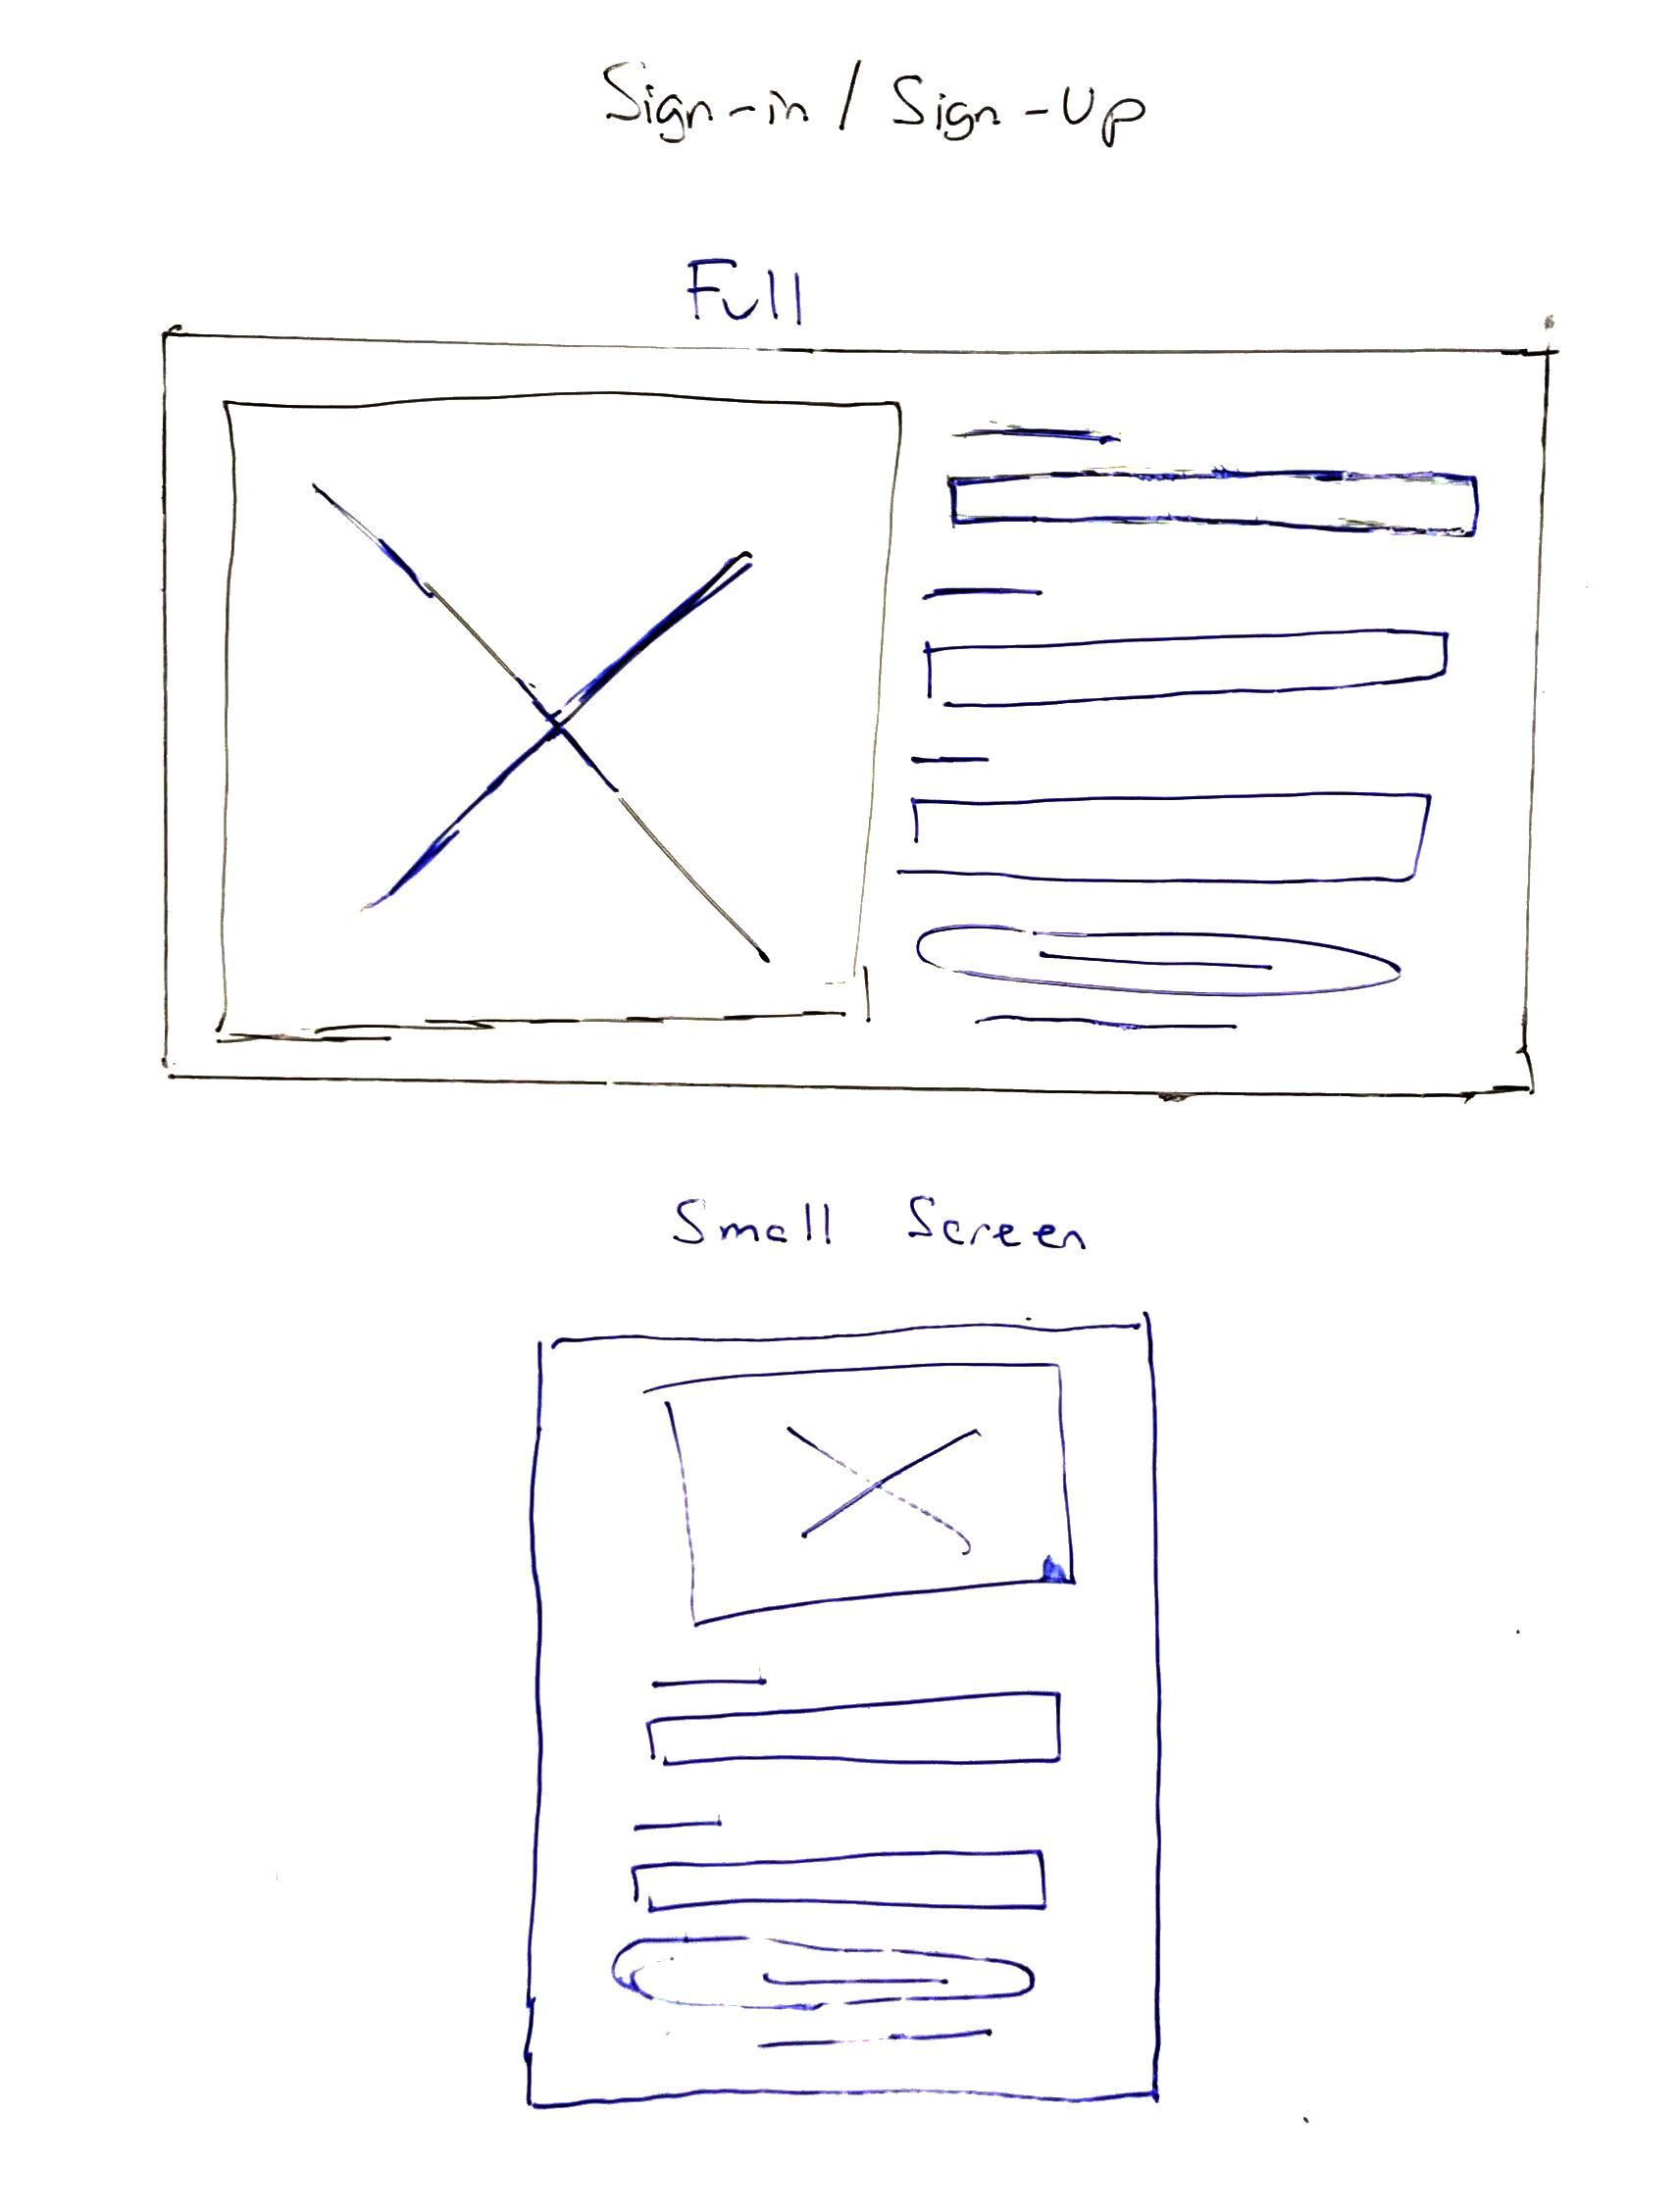 Sign-in / Sign-Up
Full
Small Screen